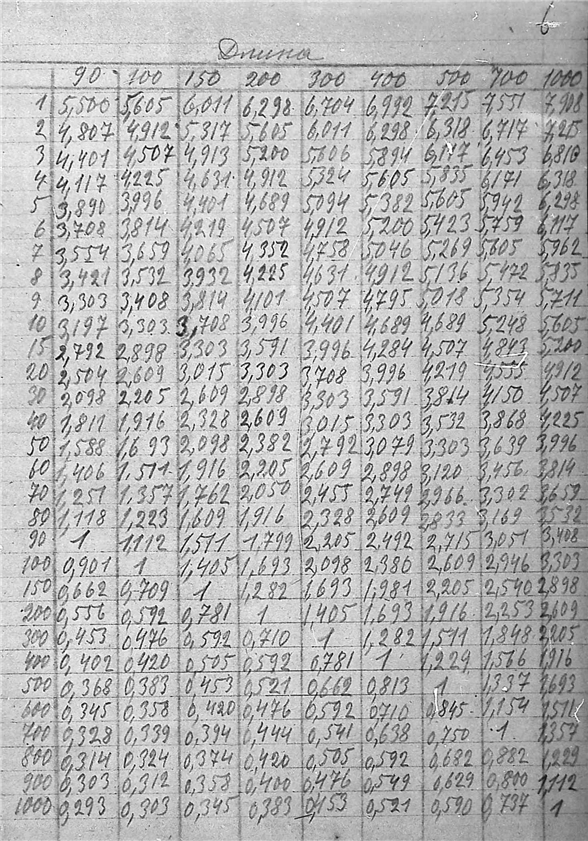 6
Длина
90 100 150 200 300 400 500 700 1000
1 5,500 5,605 6,011 6,298 6,704 6,992 7,215 7,551 7,901
2 4,807 4912 5,317 5,605 6,011 6,298 6,318 6,717 7,215
3 4,401 4,507 4,913 5,200 5,606 5,894 6,117 6,453 6,810
4 4,117 4,225 4,631 4,912 5,324 5,605 5,835 6,171 6,318
5 3,890 3,996 4,401 4,689 5,094 5,382 5,605 5,942 6,298
6 3,708 3,814 4,219 4,507 4,912 5,200 5,423 5,759 6,117
7 3,554 3,659 4,065 4,352 4,758 5,046 5,269 5,605 5,962
8 3,421 3,532 3,932 4,225 4,631 4,912 5,136 5,472 5,835
9 3,303 3,408 3,814 4,101 4,507 4,795 5,018 5,354 5,711
10 3,197 3,303 3,708 3,996 4,401 4,689 4,689 5,248 5,605
15 2,792 2,898 3,303 3,591 3,996 4,284 4,507 4,843 5,200
20 2,504 2,609 3,015 3,303 3,708 3,996 4,219 4,555 4,912
30 2,098 2,205 2,609 2,898 3,303 3,591 3,864 4,150 4,507
40 1,811 1,916 2,328 2,609 3,015 3,303 3,532 3,868 4,225
50 1,588 1,693 2,098 2,382 2,792 3,079 3,303 3,639 3,996
60 1,406 1,511 1,916 2,205 2,609 2,898 3,120 3,456 3,814
70 1,251 1,357 1,762 2,050 2,455 2,749 2,966 3,302 3,659
80 1,118 1,223 1,609 1,916 2,328 2,609 2,833 3,169 3,532
90 1 1,112 1,511 1,799 2,205 2,492 2,715 3,051 3,408
100 0,901 1 1,405 1,693 2,098 2,386 2,609 2,946 3,303
150 0,662 0,709 1 1,282 1,693 1,981 2,205 2,540 2,898
200 0,556 0,592 0,781 1 1,405 1,693 1,916 2,253 2,609
300 0,453 0,476 0,592 0,710 1 1,282 1,511 1,848 2,205
400 0,402 0,420 0,505 0,592 0,781 1 1,229 1,566 1,916
500 0,368 0,383 0,453 0,521 0,662 0,813 1 1,337 1,693
600 0,345 0,358 0,420 0,476 0,592 0,710 0,845 1,154 1,511
700 0,328 0,339 0,394 0,444 0,541 0,638 0,750 1 1,357
800 0,314 0,324 0,374 0,420 0,505 0,592 0,682 0,882 1,229
900 0,303 0,312 0,358 0,400 0,476 0,549 0,629 0,800 1,112
1000 0,293 0,303 0,345 0,383 0,453 0,521 0,590 0,737 1